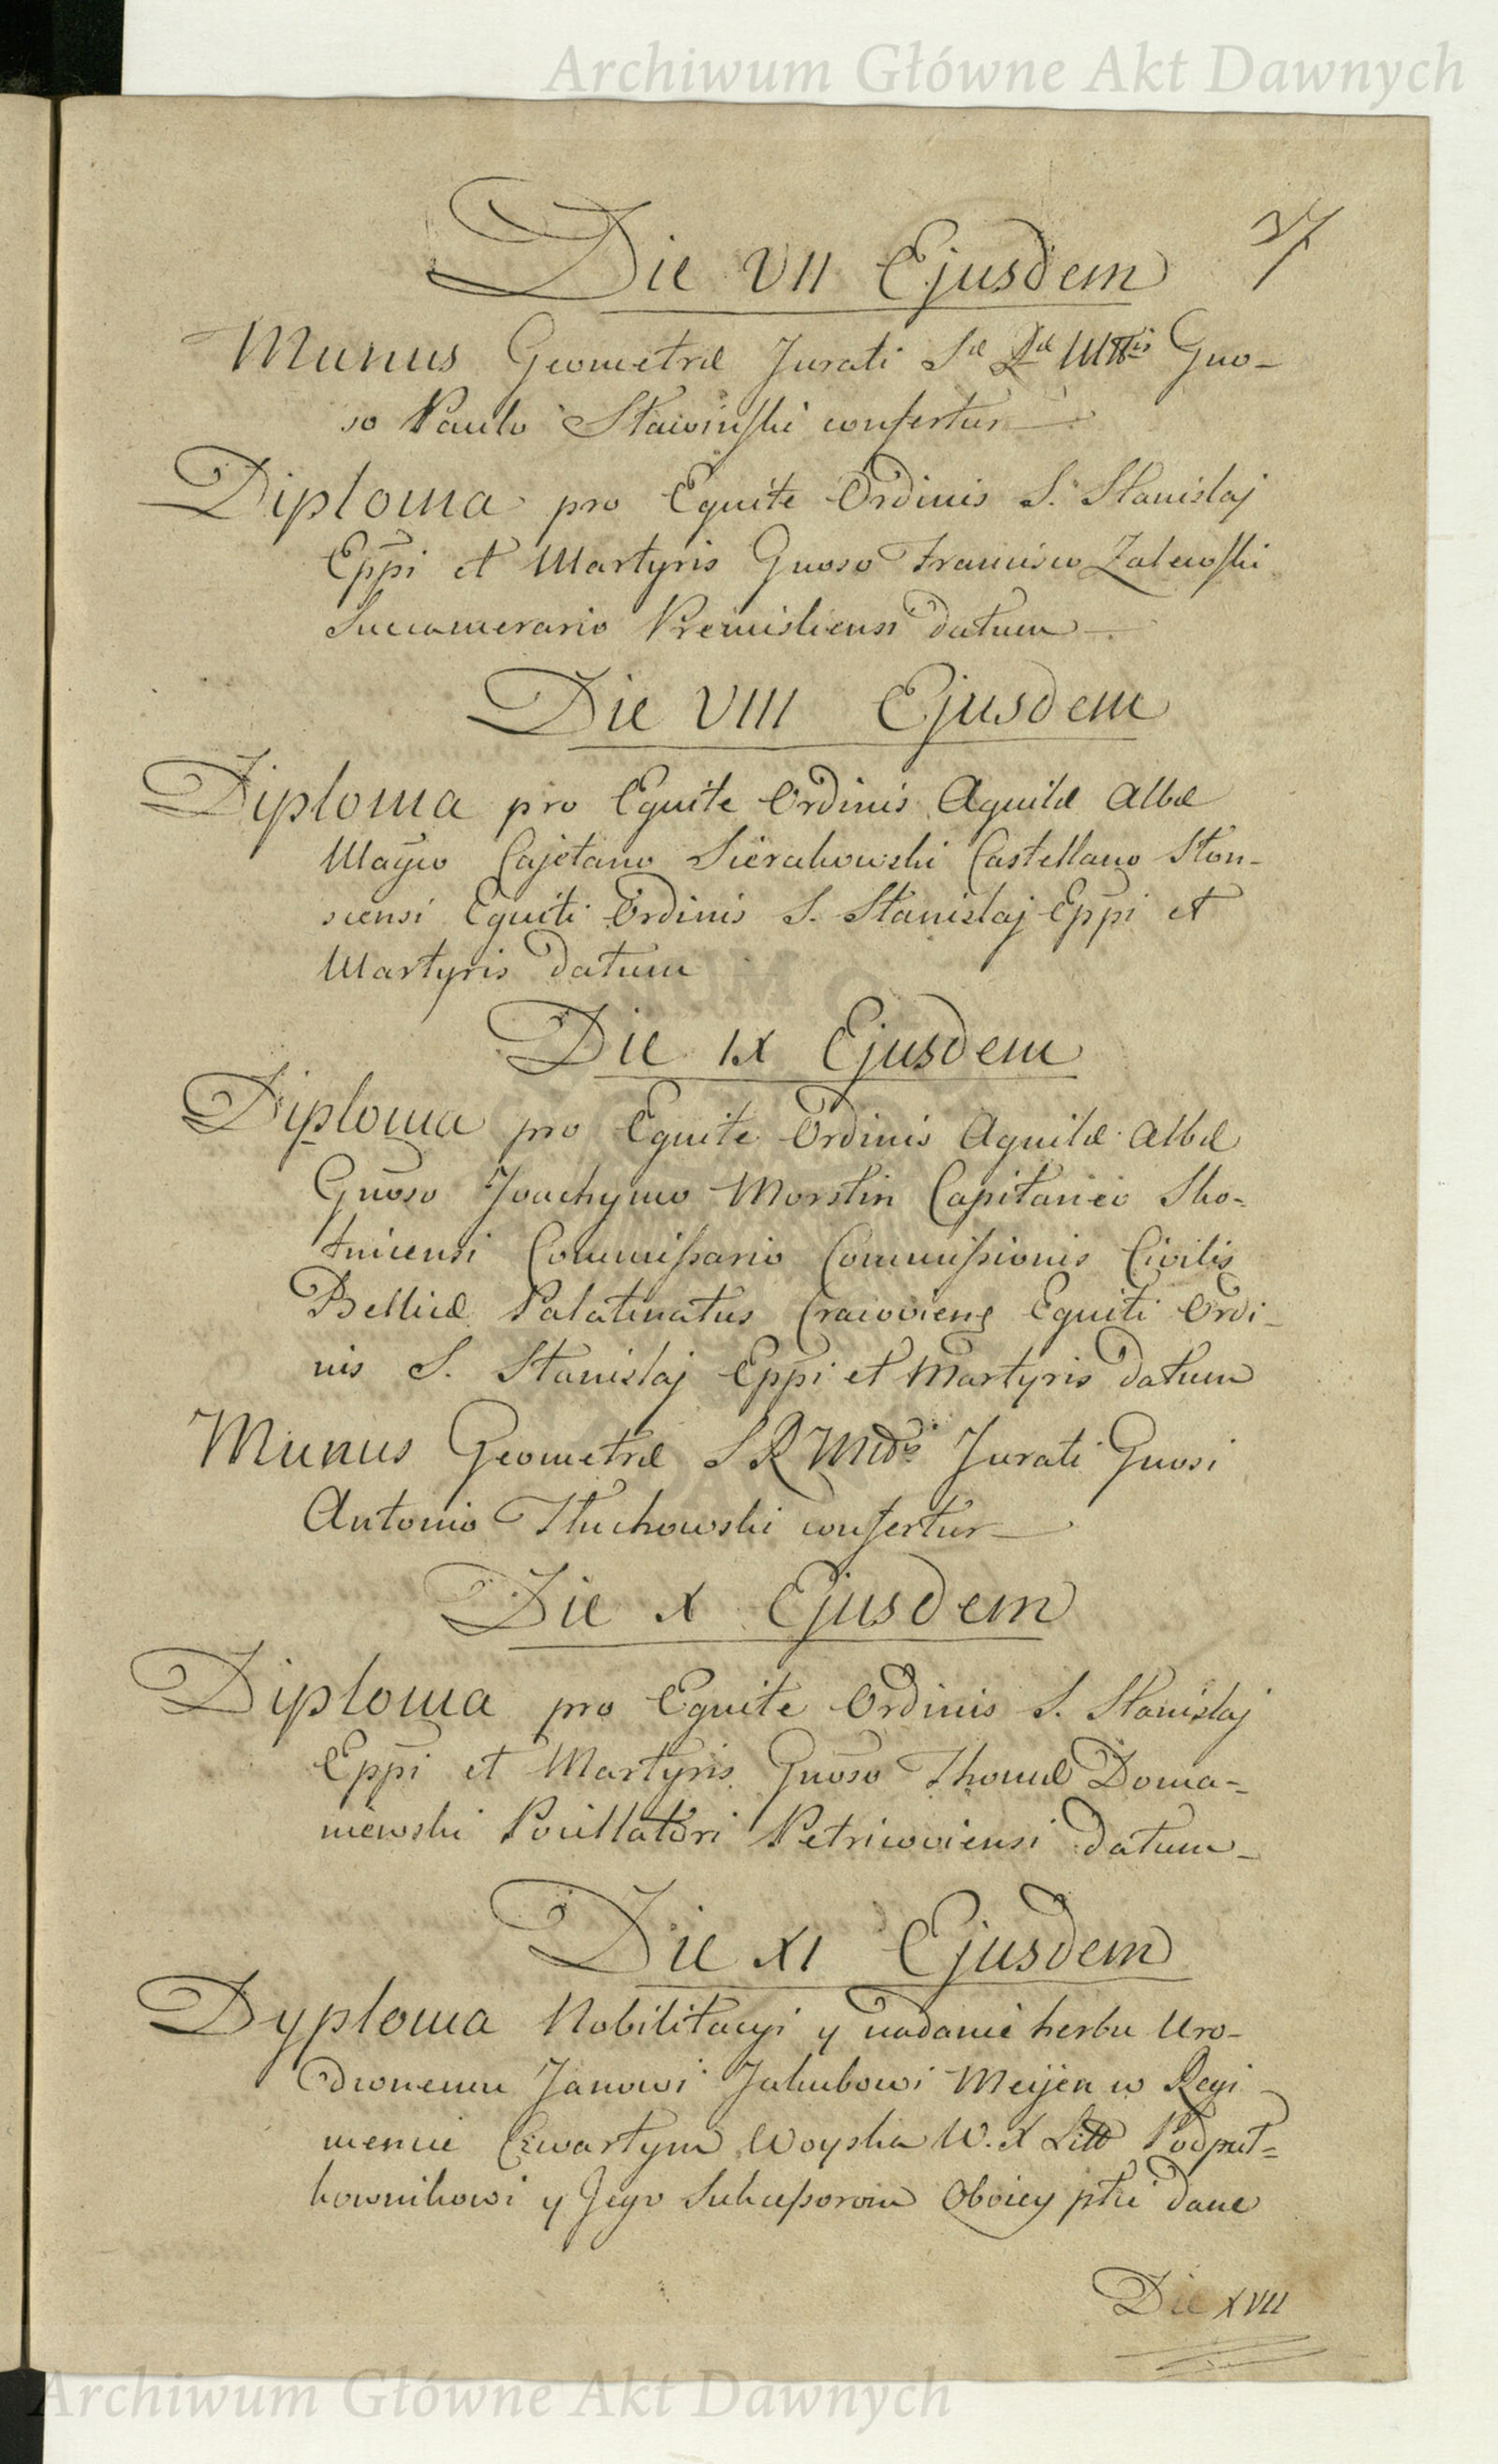 Archiwum Główne Akt Dawnych
37
Die VII Ejusdem
Munus Geometræ Jurati Sæ Ræ Mttis Gno-
so Paulo Stawinski confertur
Diploma pro Equite Ordinis S. Stanislaj
Eppi et Martyris Gnoso Francisco Zalewski
Succamerario Premisliensi datum
Die VIII Ejusdem
Diploma pro Equite Ordinis Aquilæ Albæ
Magco Cajetano Sierakowski Castellano Slon-
scensi Equiti Ordinis S. Stanislaj Eppi et
Martyris datum
Die IX Ejusdem
Diploma pro Equite Ordinis Aquilæ Albæ
Gnoso Joachymo Morstin Capitaneo Sko-
tnicensi Commissario Commissionis Civilis
Bellicæ Palatinatus Cracoviens Equiti Ordi-
nis S. Stanislaj Eppi et Martyris datum
Munus Geometræ S R Mtis Jurati Gnosi
Antonio Tłuchowski confertur
Die X Ejusdem
Diploma pro Equite Ordinis S. Stanislaj
Eppi et Martyris Gnoso Thomæ Doma-
niewski Pocillatori Petricoviensi datum
Die XI Ejusdem
Dyploma Nobilitacyi y nadanie herbu Uro-
dzonemu Janowi Jakubowi Meijen w Regi
mencie Czwartym Woyska W. X Litt Podpuł-
kownikowi y Jego Sukcessorom Oboiey płci dane
Die XVII
Archiwum Główne Akt Dawnych